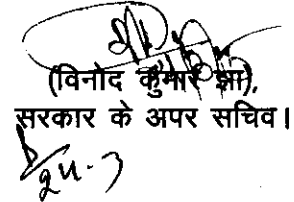 (विनोद कुमार झा),
सरकार के अपर सचिव।